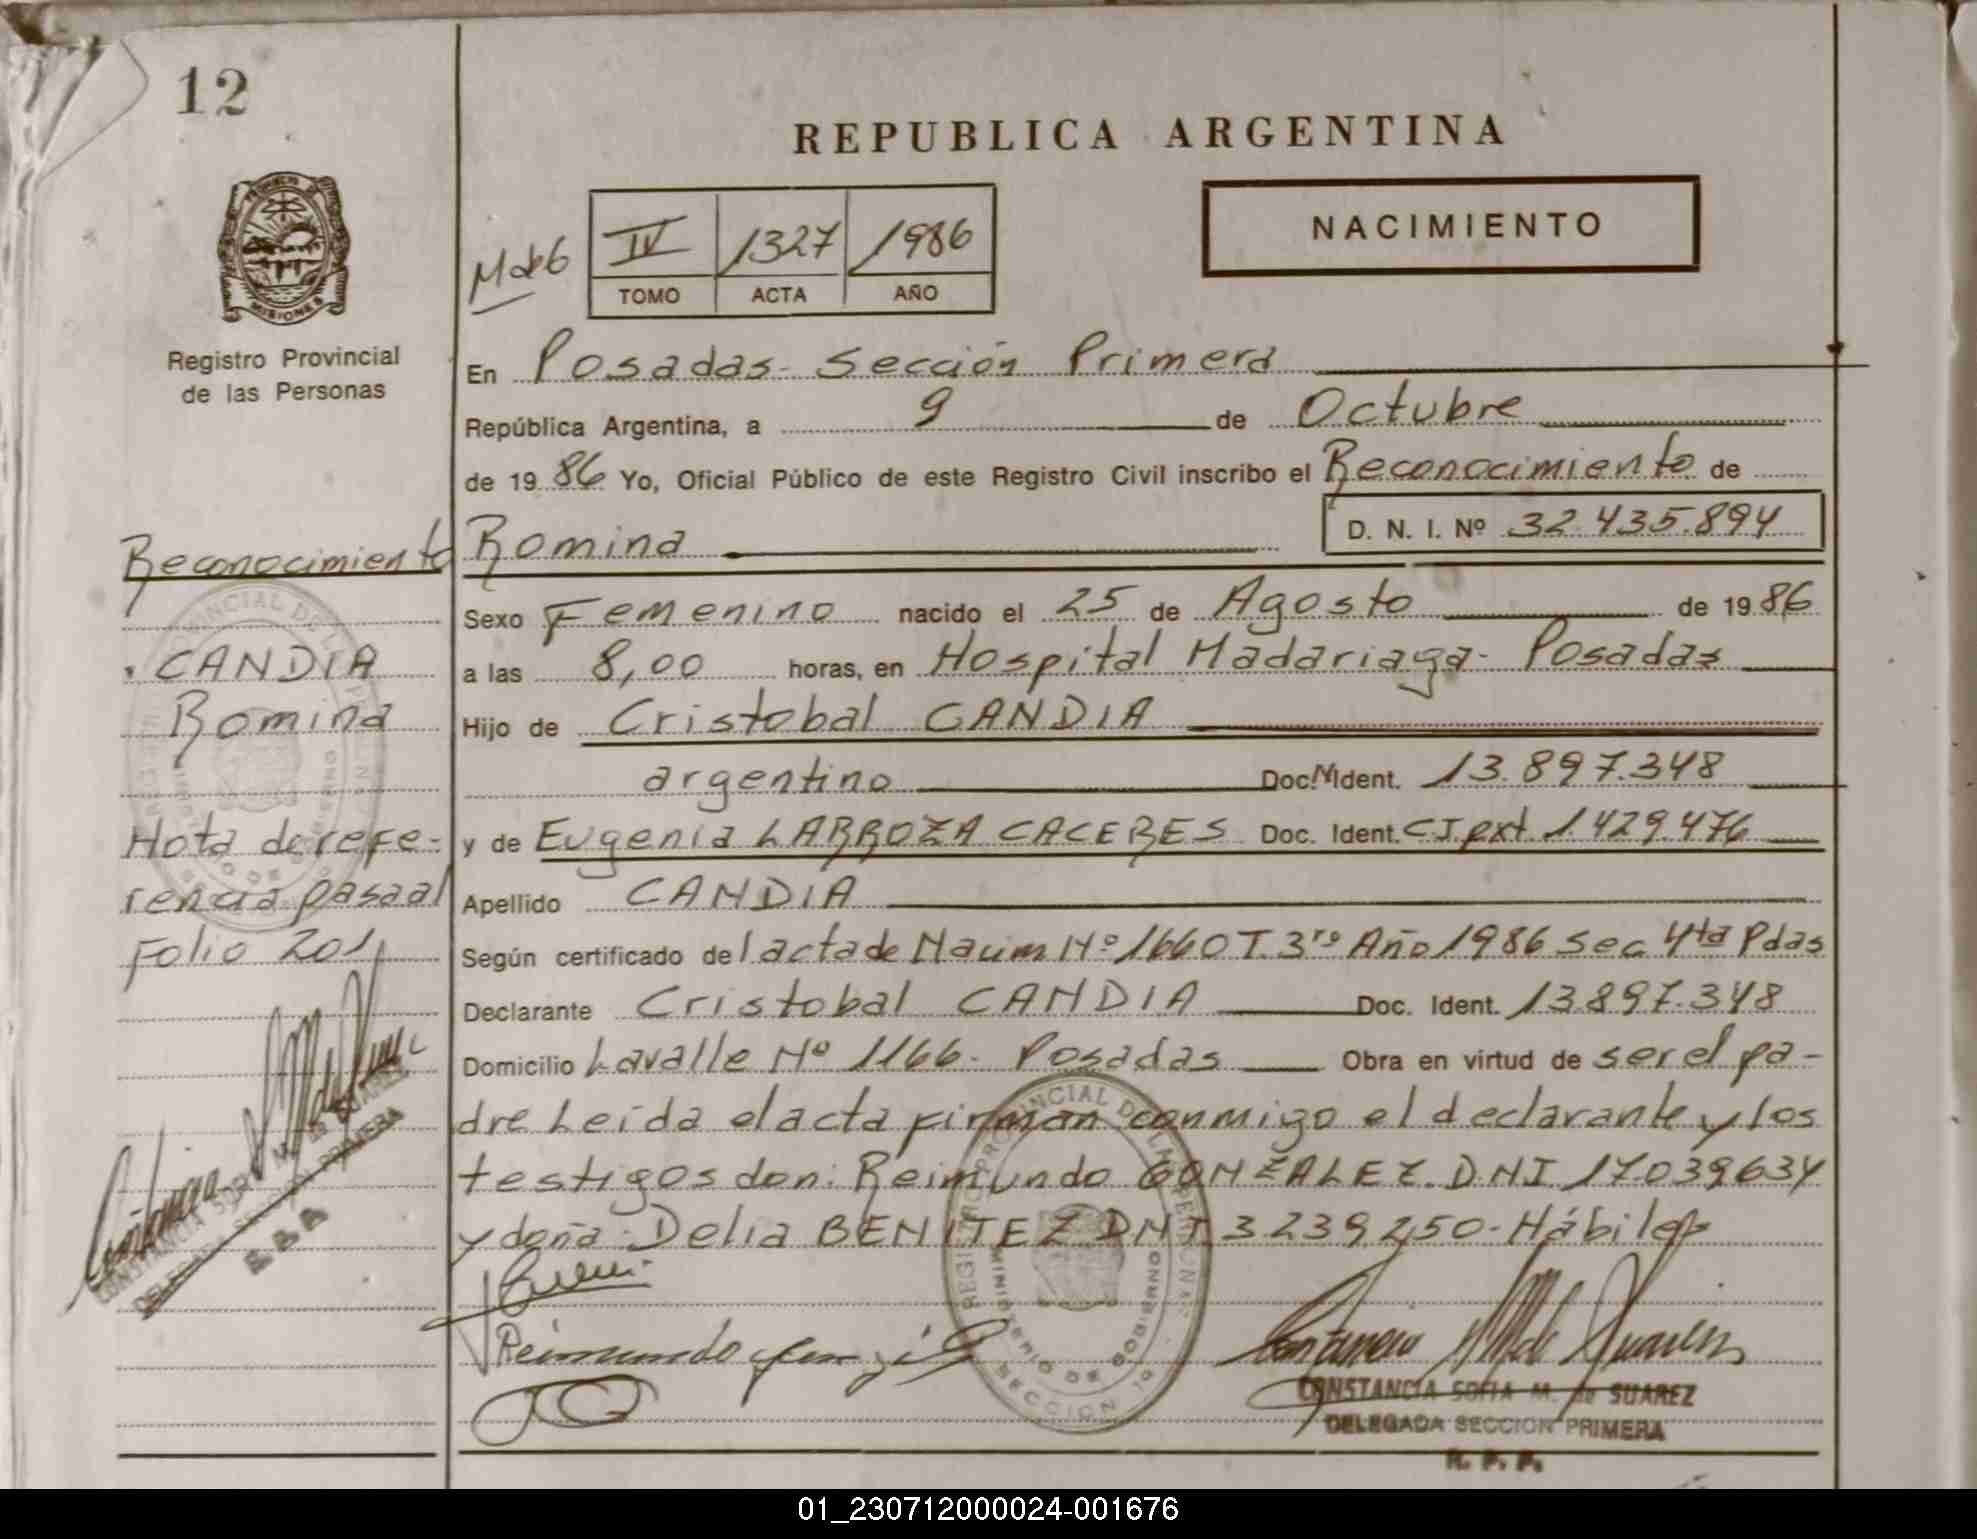 12
REPUBLICA ARGENTINA
NACIMIENTO
IV 1327 1986
TOMO ACTA AÑO
MISIONES
Registro Provincial
de las Personas
En Posadas - Sección Primera
República Argentina, a 9 de Octubre
de 1986 Yo, Oficial Público de este Registro Civil inscribo el Reconocimiento de
D. N. I. Nº 32.435.894
Romina
Sexo Femenino nacido el 25 de Agosto de 1986
a las 8,00 horas, en Hospital Madariaga - Posadas
Hijo de Cristobal CANDIA
argentino Doc. N Ident. 13.897.348
y de Eugenia LARROZA CACERES Doc. Ident. C.I. ext. 1.429.476
Apellido CANDIA
Según certificado del acta de Nacim Nº 1660 T. 3ro Año 1986 Sec. 4ta Pdas
Declarante Cristobal CANDIA Doc. Ident. 13.897.348
Domicilio Lavalle Nº 1166 - Posadas Obra en virtud de ser el pa-
dre Leída el acta firman conmigo el declarante y los
testigos don: Reimundo GONZALEZ. DNI 17.039634
y doña: Delia BENITEZ DNI 3239250 - Hábiles
Reimundo
CONSTANCIA SOFIA M. de SUAREZ
DELEGADA SECCION PRIMERA
R. P. P.
REGISTRO PROVINCIAL DE LAS PERSONAS
MINISTERIO DE GOBIERNO
SECCION 1a
Reconocimiento
CANDIA
Romina
Nota de refe-
rencia pasa al
Folio 201
CONSTANCIA SOFIA M. de SUAREZ
DELEGADA SECCION PRIMERA
01_230712000024-001676